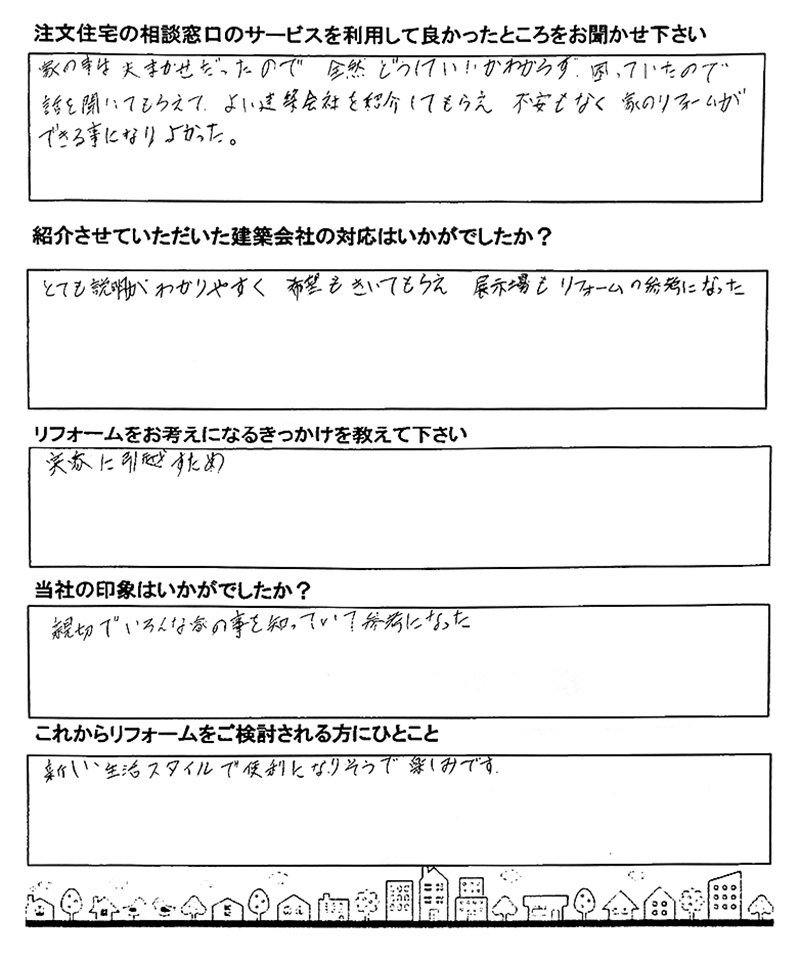 注文住宅の相談窓口のサービスを利用して良かったところをお聞かせ下さい
家の事は夫まかせだったので 全然 どうしていいかわからず 困っていたので
話を聞いてもらえて、よい建築会社を紹介してもらえ 不安もなく 家のリフォームが
できる事になり よかった。
紹介させていただいた建築会社の対応はいかがでしたか？
とても説明が わかりやすく 希望も きいてもらえ 展示場も リフォームの参考になった
リフォームをお考えになるきっかけを教えて下さい
実家に引越すため
当社の印象はいかがでしたか？
親切でいろんな家の事を知っていて参考になった
これからリフォームをご検討される方にひとこと
新しい生活スタイルで便利になりそうで 楽しみです.